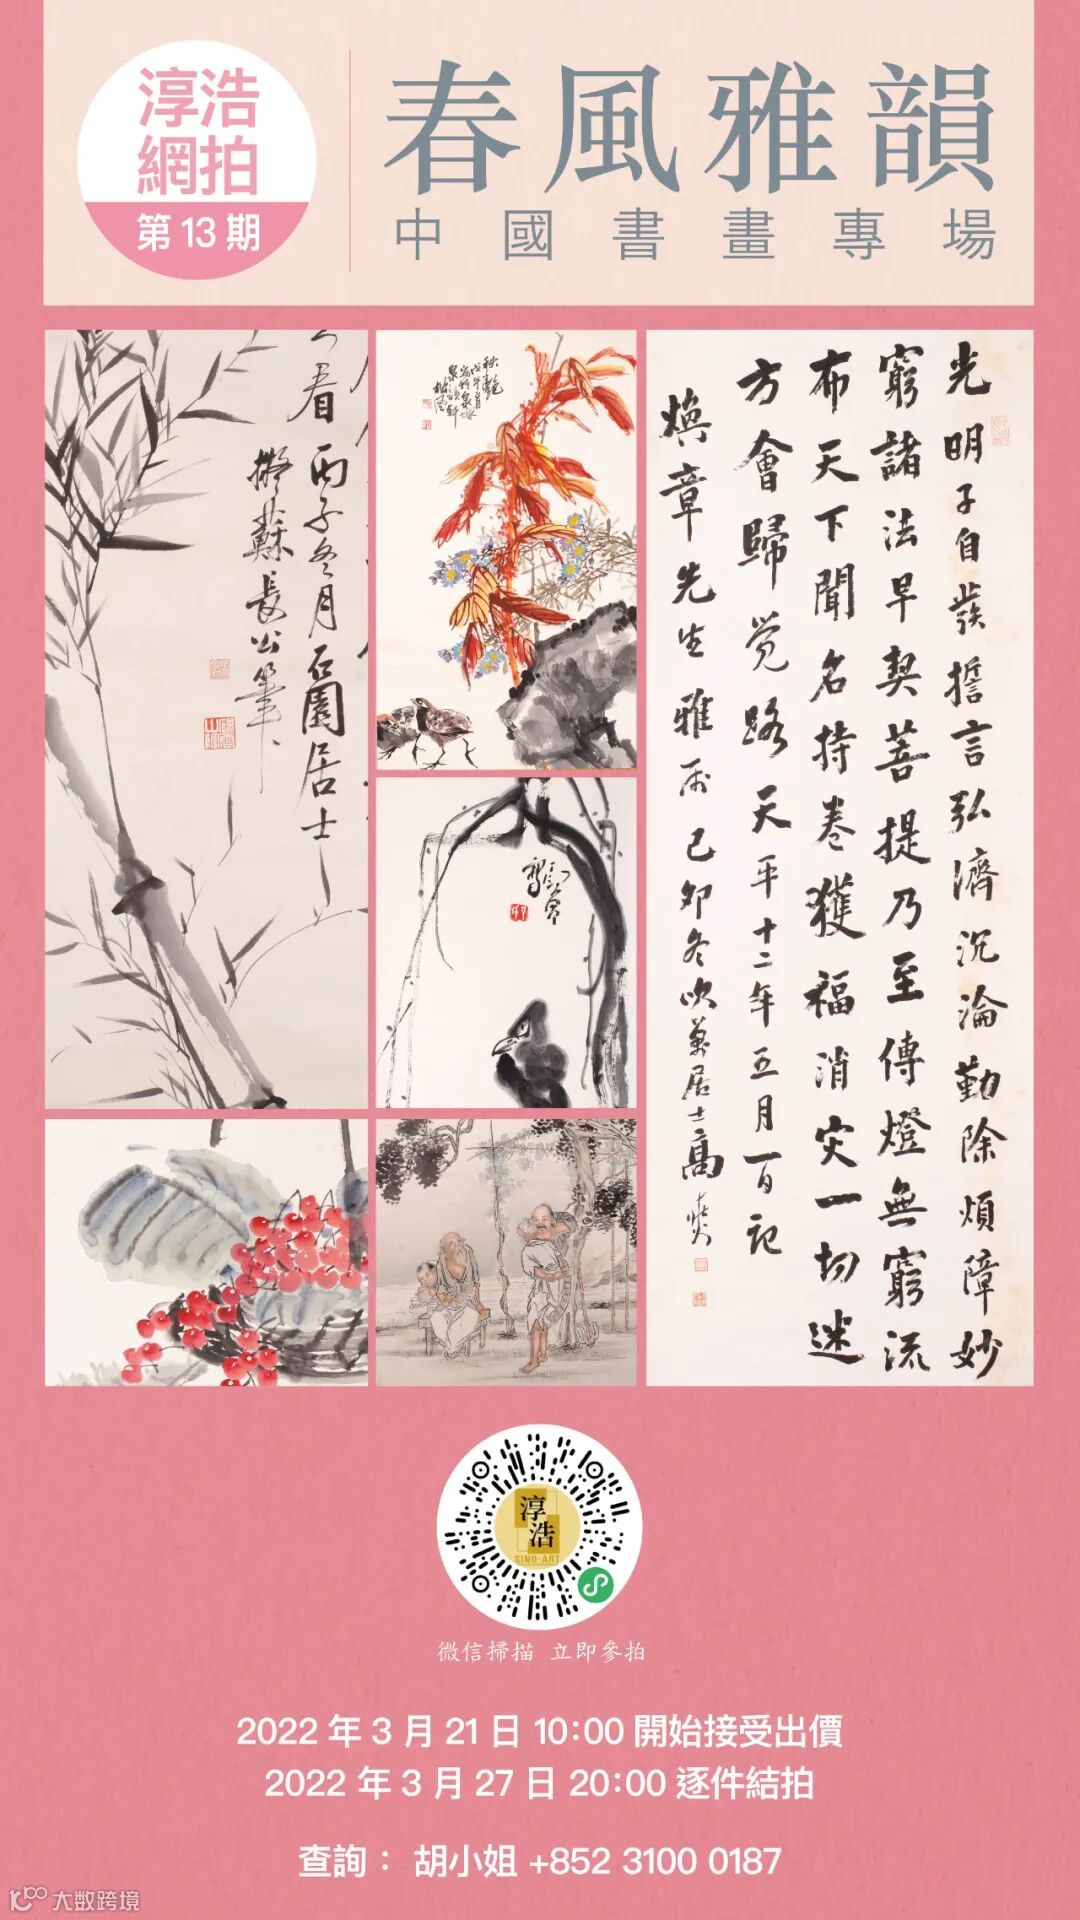 淳浩
網拍
第 13 期
春風雅韻
中國書畫專場
看 丙子冬月石園居士
擬蘇長公筆
秋艷
光明子自發誓言弘濟沉淪勤除煩障妙
窮諸法早契菩提乃至傳燈無窮流
布天下聞名持卷獲福消灾一切迷
方會歸觉路 天平十二年五月一日記
煥章先生雅屬 己卯冬吹萬居士高燮
淳浩
SINO-ART
微信掃描 立即參拍
2022 年 3 月 21 日 10:00 開始接受出價
2022 年 3 月 27 日 20:00 逐件結拍
查詢： 胡小姐 +852 3100 0187
大数跨境